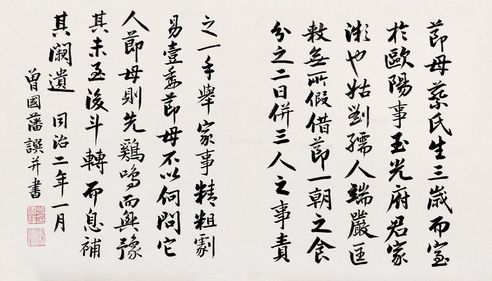 節母蔡氏生三歲而室
於歐陽事玉光府君家
微也姑劉孺人端嚴匡
敕無所假借節一朝之食
分之二日併三人之事責
之一手舉家事精粗劇
易壹委節母不以伺問它
人節母則先雞鳴而興豫
其未至後斗轉而息補
其闕遺 同治二年一月
曾國藩譔并書